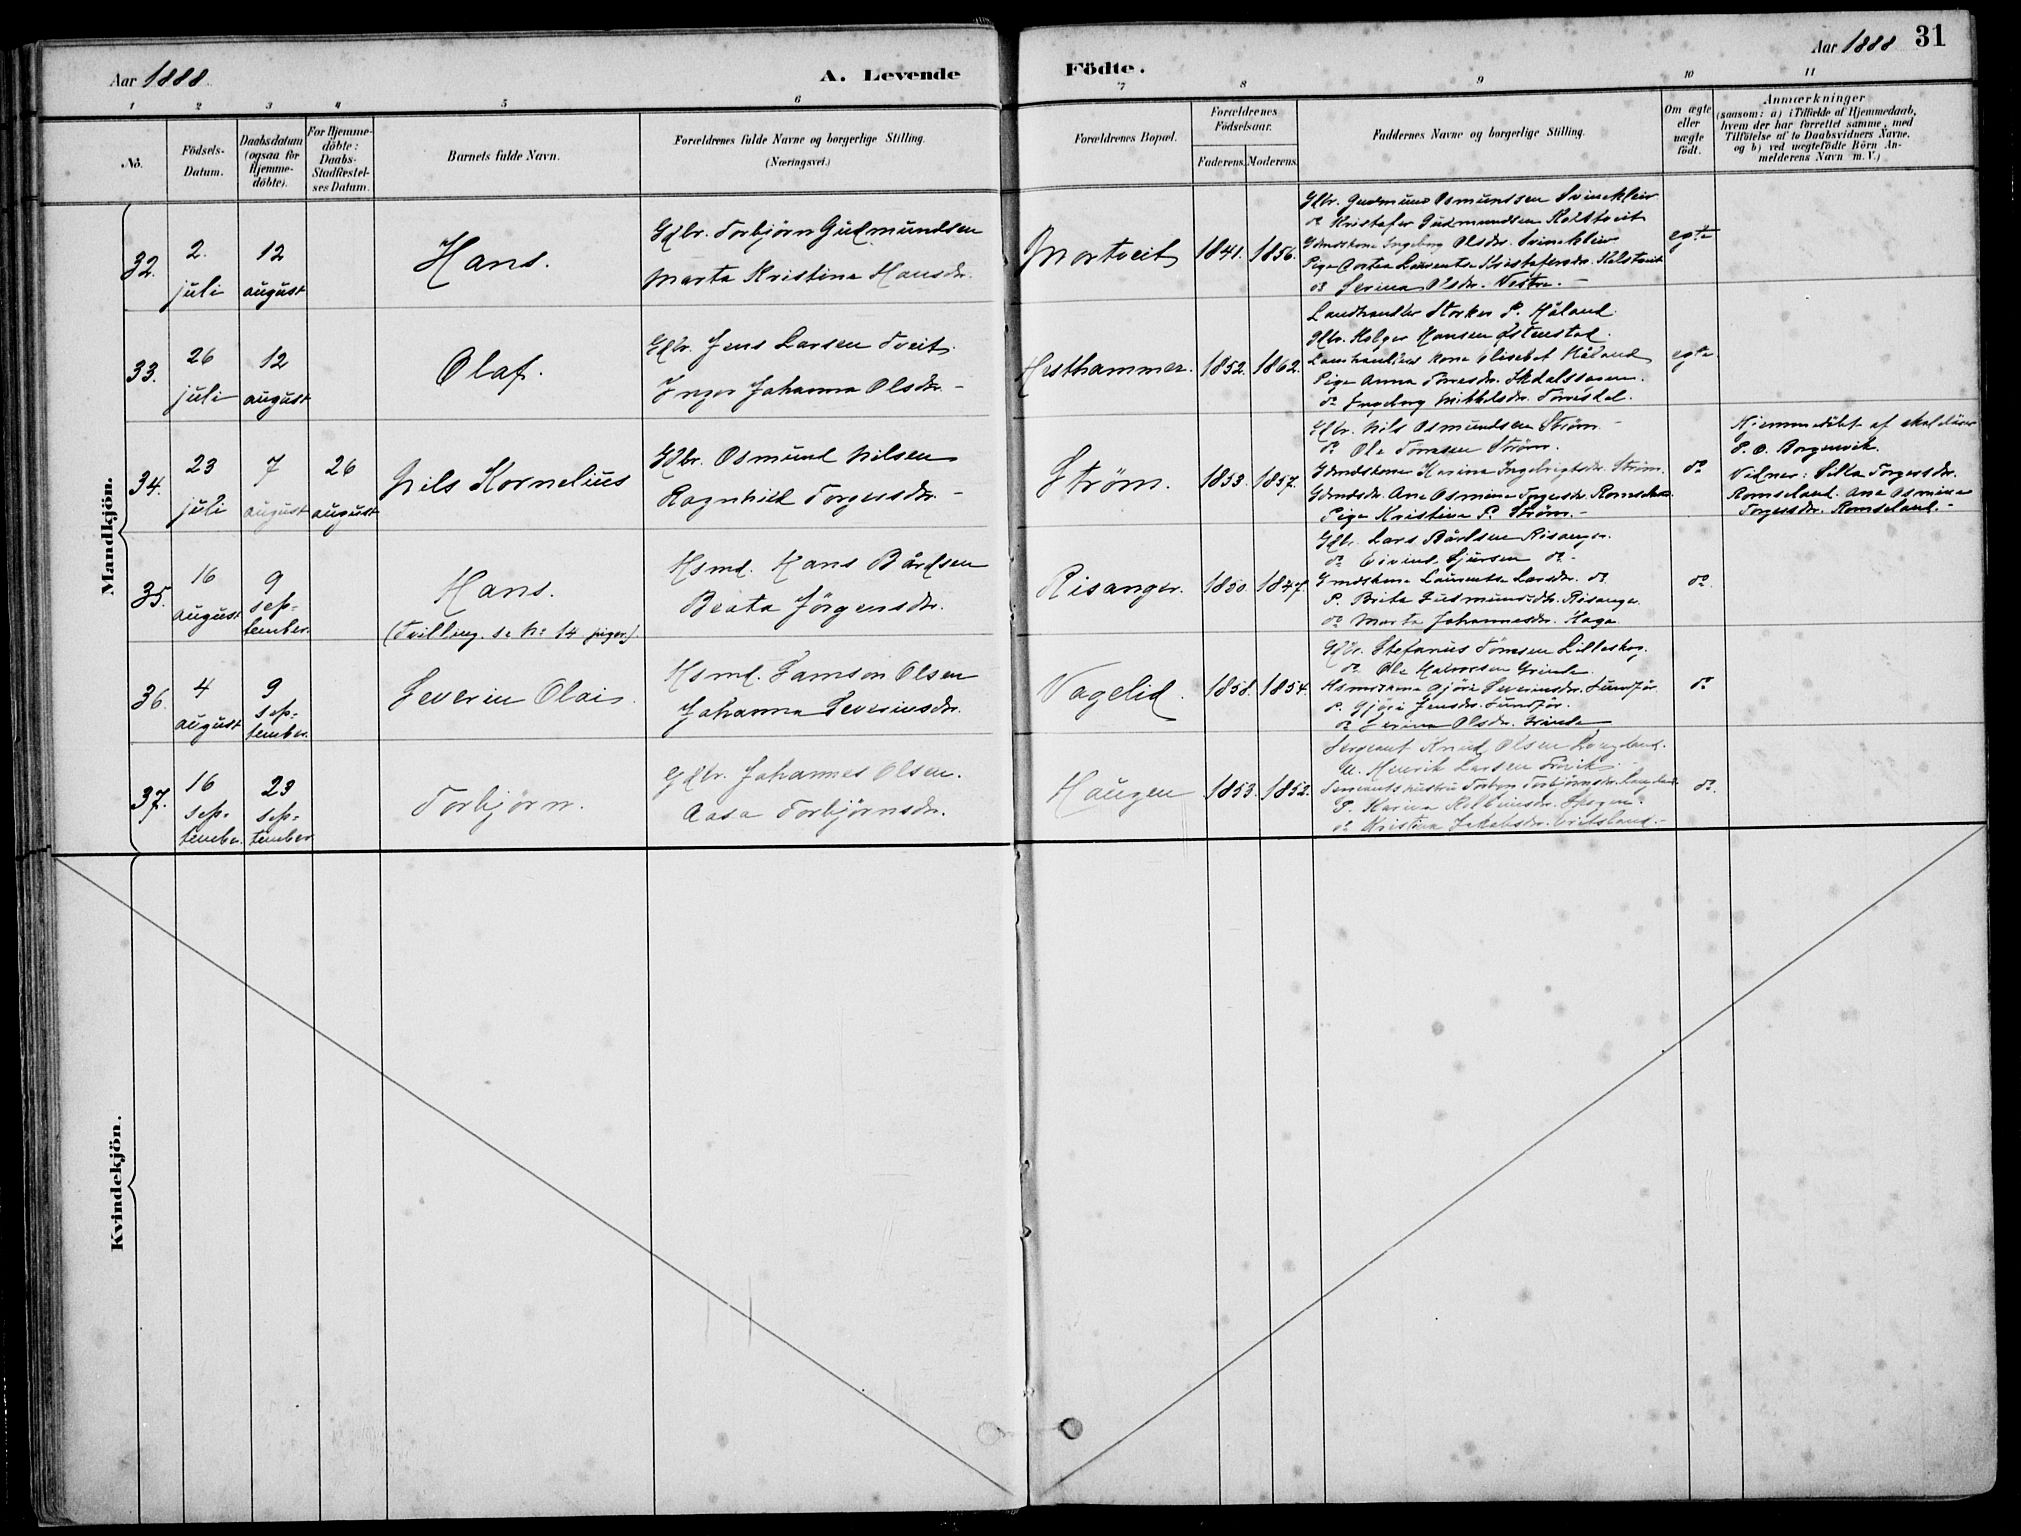 Aar 1888.
A. Levende
Födte.
Aar 1888
31
1 2 3 4 5 6 7 8 9 10 11
No.
Födsels-Datum.
Daabsdatum (ogsaa for Hjemme-döbte).
For Hjemme-döbte: Daabs-Stadfæstel-ses Datum.
Barnets fulde Navn.
Forældrenes fulde Navne og borgerlige Stilling. (Næringsvei.)
Forældrenes Bopæl.
Forældrenes Födselsaar.
Faderens. Moderens.
Faddernes Navne og borgerlige Stilling.
Om ægte eller uægte födt.
Anmærkninger
(saasom: a) i Tilfælde af Hjemmedaab,
hvem der har forrettet samme, med
Tilföielse af to Daabsvidners Navne.
og b) ved uægtefödte Börn An-
melderens Navn m. V.)
Mandkjön.
32. 2. juli 12 august
Hans.
Gdbr. Torbjörn Gudmundsen
Marta Kristina Hansdr.
Mortveit 1841. 1856.
Gbr. Gudmund Osmundsen Svineklei
do Kristofer Gudmundsen
Gdmdskone Ingeborg Olsdr.
Pige
og Serina Olsdr. Vestre. -
egte
33. 26 juli 12 august
Olaf.
Gdbr. Jens Larsen Tveit.
Inger Johanna Olsdr. -
Hesthammer. 1852. 1862.
Landhandler Storker P. Håland.
Gbr. Holger Hansen Östenstad.
kone Elisebet Håland
Pige Anna
do Ingeborg Mikkelsdr.
egte
34. 23 juli 7 august 26 august
Nils Kornelius
Gdbr. Osmund Nilsen
Ragnhild Torgersdr. -
Ström. 1853. 1857.
Gdbr. Nils Osmundsen Ström -
P. Ole Ström.
Gdmdskone Karina Ström.
Gdmdsdr. Ane Osmina Torgersdr. Romseland
Pige Kristina P. Ström. -
do
Hjemmedöbt af skolelærer
P. O. Borgenvik.
Vidner: Silla Torgersdr.
Romseland. Ane Osmina
Torgersdr. Romseland. -
35. 16 august 9 september.
Hans.
(Tvilling. se No 14 piger.)
Hsmd. Hans Bårdsen
Beata Jörgensdr.
Risanger. 1850. 1847.
Gdbr. Lars Bårdsen Risanger.
do Eivind Sjursen do -
Gmdskone Laurentse Larsdr. do
P. Brita Gudmundsdr. Risanger
do Marta Johannesdr. Haga
do.
36. 4 august 9 september.
Severin Olai.
Hsmd. Samson Olsen
Johanna Severinsdr.
Vagelid. 1858. 1854.
Gdbr. Stefanus Lilleskog.
do Ole Halvorsen Grinde
Hsmdskone Gjöri Severinsdr. Sundför
P. Gjöri Jensdr. Sundför.
do Serina Olsdr. Grinde
do
37. 16 september. 23 september
Torbjörn.
Gdbr. Johannes Olsen.
Aasa Torbjörnsdr.
Haugen 1853. 1852.
Sergeant Knud Olsen Langeland.
U. Henrik Larsen
Sergeants hustru Torbjörnsdr.
P. Karina
do Kristina Jakobsdr.
do.
Kvindekjön.